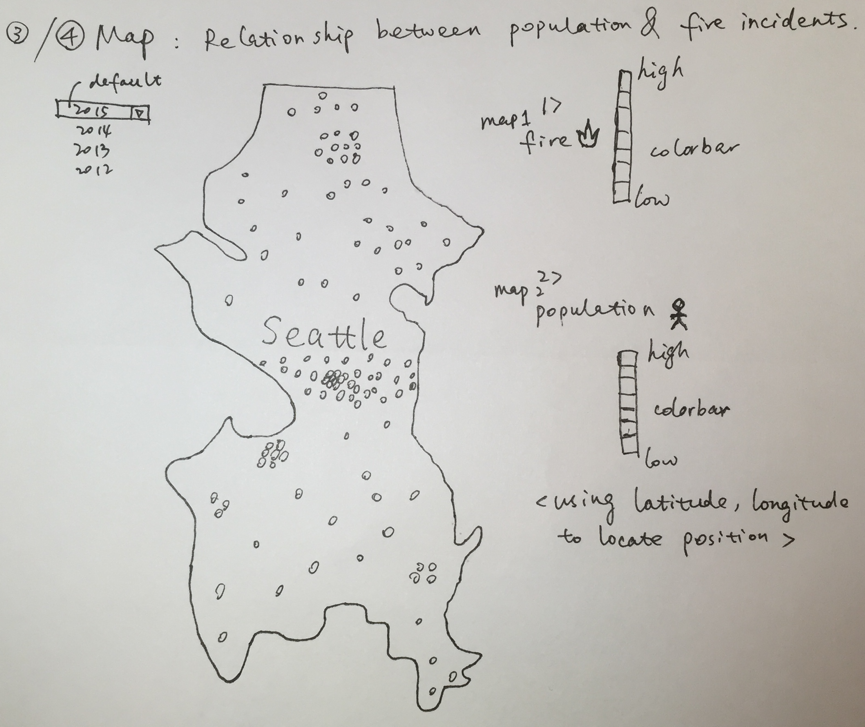 ③/④ Map : Relationship between population & fire incidents.
default
2015
2014
2013
2012
map1 1>
fire
high
colorbar
low
Seattle
map 2 2>
population
high
colorbar
low
<using latitude, longitude
to locate position >